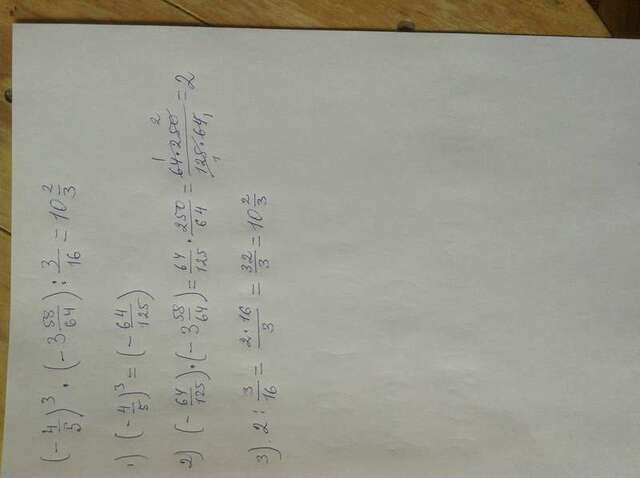 (-4/5)³ · (-3 58/64) : 3/16 = 10 2/3
1) (-4/5)³ = (-64/125)
2) (-64/125) · (-3 58/64) = 64/125 · 250/64 = 64·250/125·64 = 2
3) 2 : 3/16 = 2·16/3 = 32/3 = 10 2/3